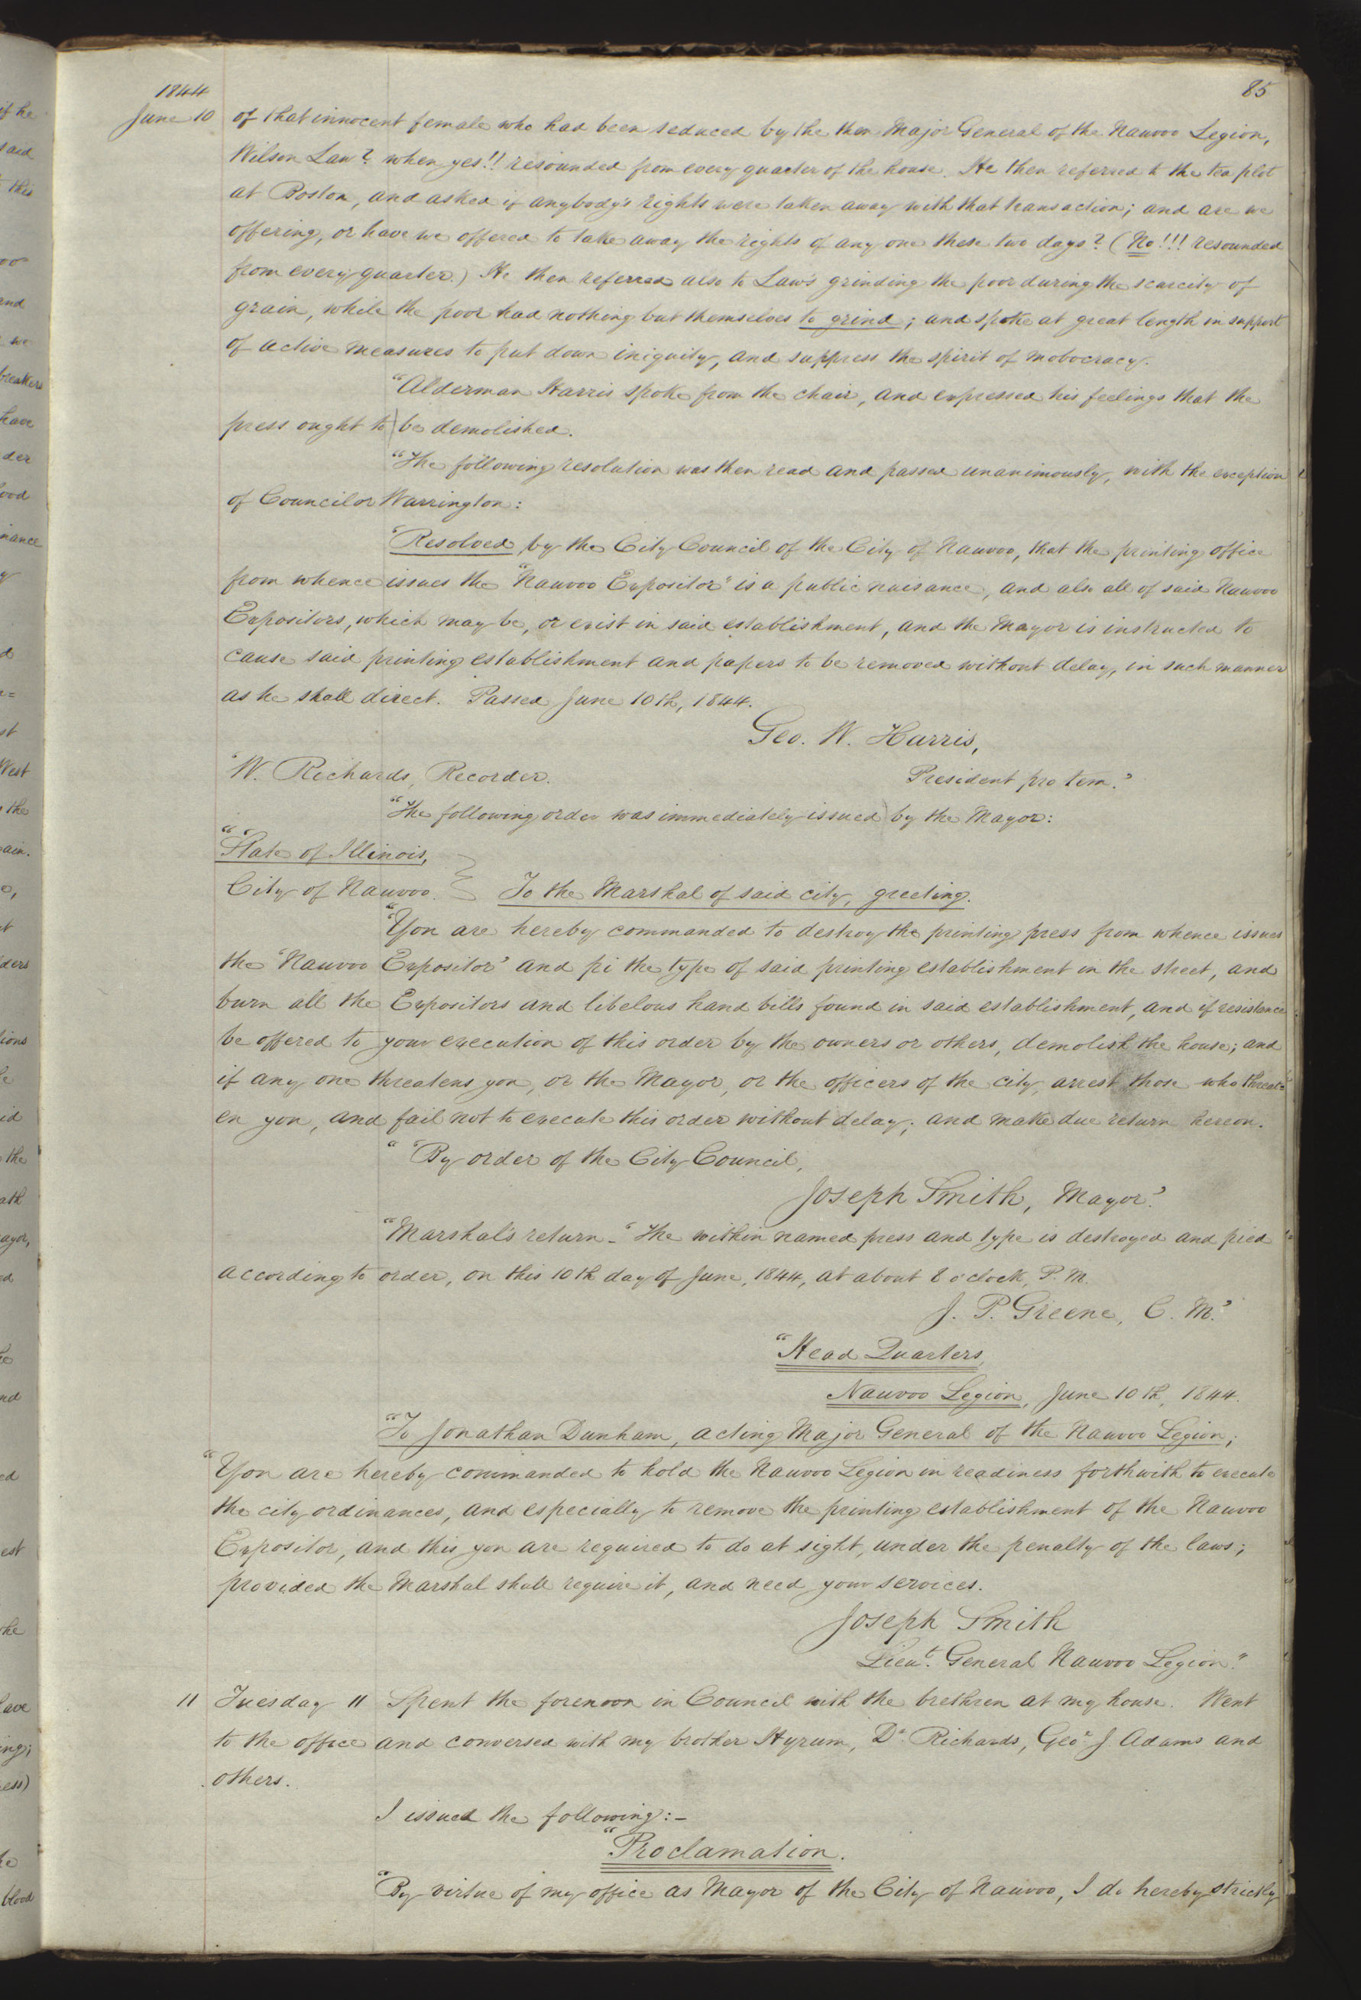 1844
85
June 10 of that innocent female who had been seduced by the then Major General of the Nauvoo Legion,
Wilson Law? when yes!! resounded from every quarter of the house. He then referred to the tea plot
at Boston, and asked if anybody's rights were taken away with that transaction; and are we
offering, or have we offered to take away the rights of any one these two days? (No!!! resounded
from every quarter.) He then referred also to Law's grinding the poor during the scarcity of
grain, while the poor had nothing but themselves to grind; and spoke at great length in support
of active measures to put down iniquity, and suppress the spirit of mobocracy.
"Alderman Harris spoke from the chair, and expressed his feelings that the
press ought to be demolished.
"The following resolution was then read and passed unanimously, with the exception
of Councilor Warrington:
'Resolved by the City Council of the City of Nauvoo, that the printing office
from whence issues the "Nauvoo Expositor" is a public nuisance, and also all of said Nauvoo
Expositors, which may be, or exist in said establishment, and the Mayor is instructed to
cause said printing establishment and papers to be removed without delay, in such manner
as he shall direct. Passed June 10th, 1844.
Geo. W. Harris,
'W. Richards, Recorder. President pro tem.'
"The following order was immediately issued by the Mayor:
"'State of Illinois,
City of Nauvoo. } To the Marshal of said city, greeting.
"'You are hereby commanded to destroy the printing press from whence issues
the 'Nauvoo Expositor' and pi the type of said printing establishment in the street, and
burn all the Expositors and libelous hand bills found in said establishment, and if resistance
be offered to your execution of this order by the owners or others, demolish the house; and
if any one threatens you, or the Mayor, or the officers of the city, arrest those who threat=
en you, and fail not to execute this order without delay; and make due return hereon.
" 'By order of the City Council,
Joseph Smith, Mayor.'
"Marshal's return — 'The within named press and type is destroyed and pied
according to order, on this 10th day of June, 1844, at about 8 o'clock, P. M.
J. P. Greene, C. M.'
"Head Quarters,
Nauvoo Legion, June 10th, 1844.
"To Jonathan Dunham, acting Major General of the Nauvoo Legion;
"You are hereby commanded to hold the Nauvoo Legion in readiness forthwith to execute
the city ordinances, and especially to remove the printing establishment of the Nauvoo
Expositor, and this you are required to do at sight, under the penalty of the laws;
provided the Marshal shall require it, and need your services.
Joseph Smith
Lieut. General Nauvoo Legion."
11 Tuesday 11 Spent the forenoon in Council with the brethren at my house. Went
to the office and conversed with my brother Hyrum, Dr. Richards, Geo. J. Adams and
others.
I issued the following:—
"Proclamation.
"By virtue of my office as Mayor of the City of Nauvoo, I do hereby strictly